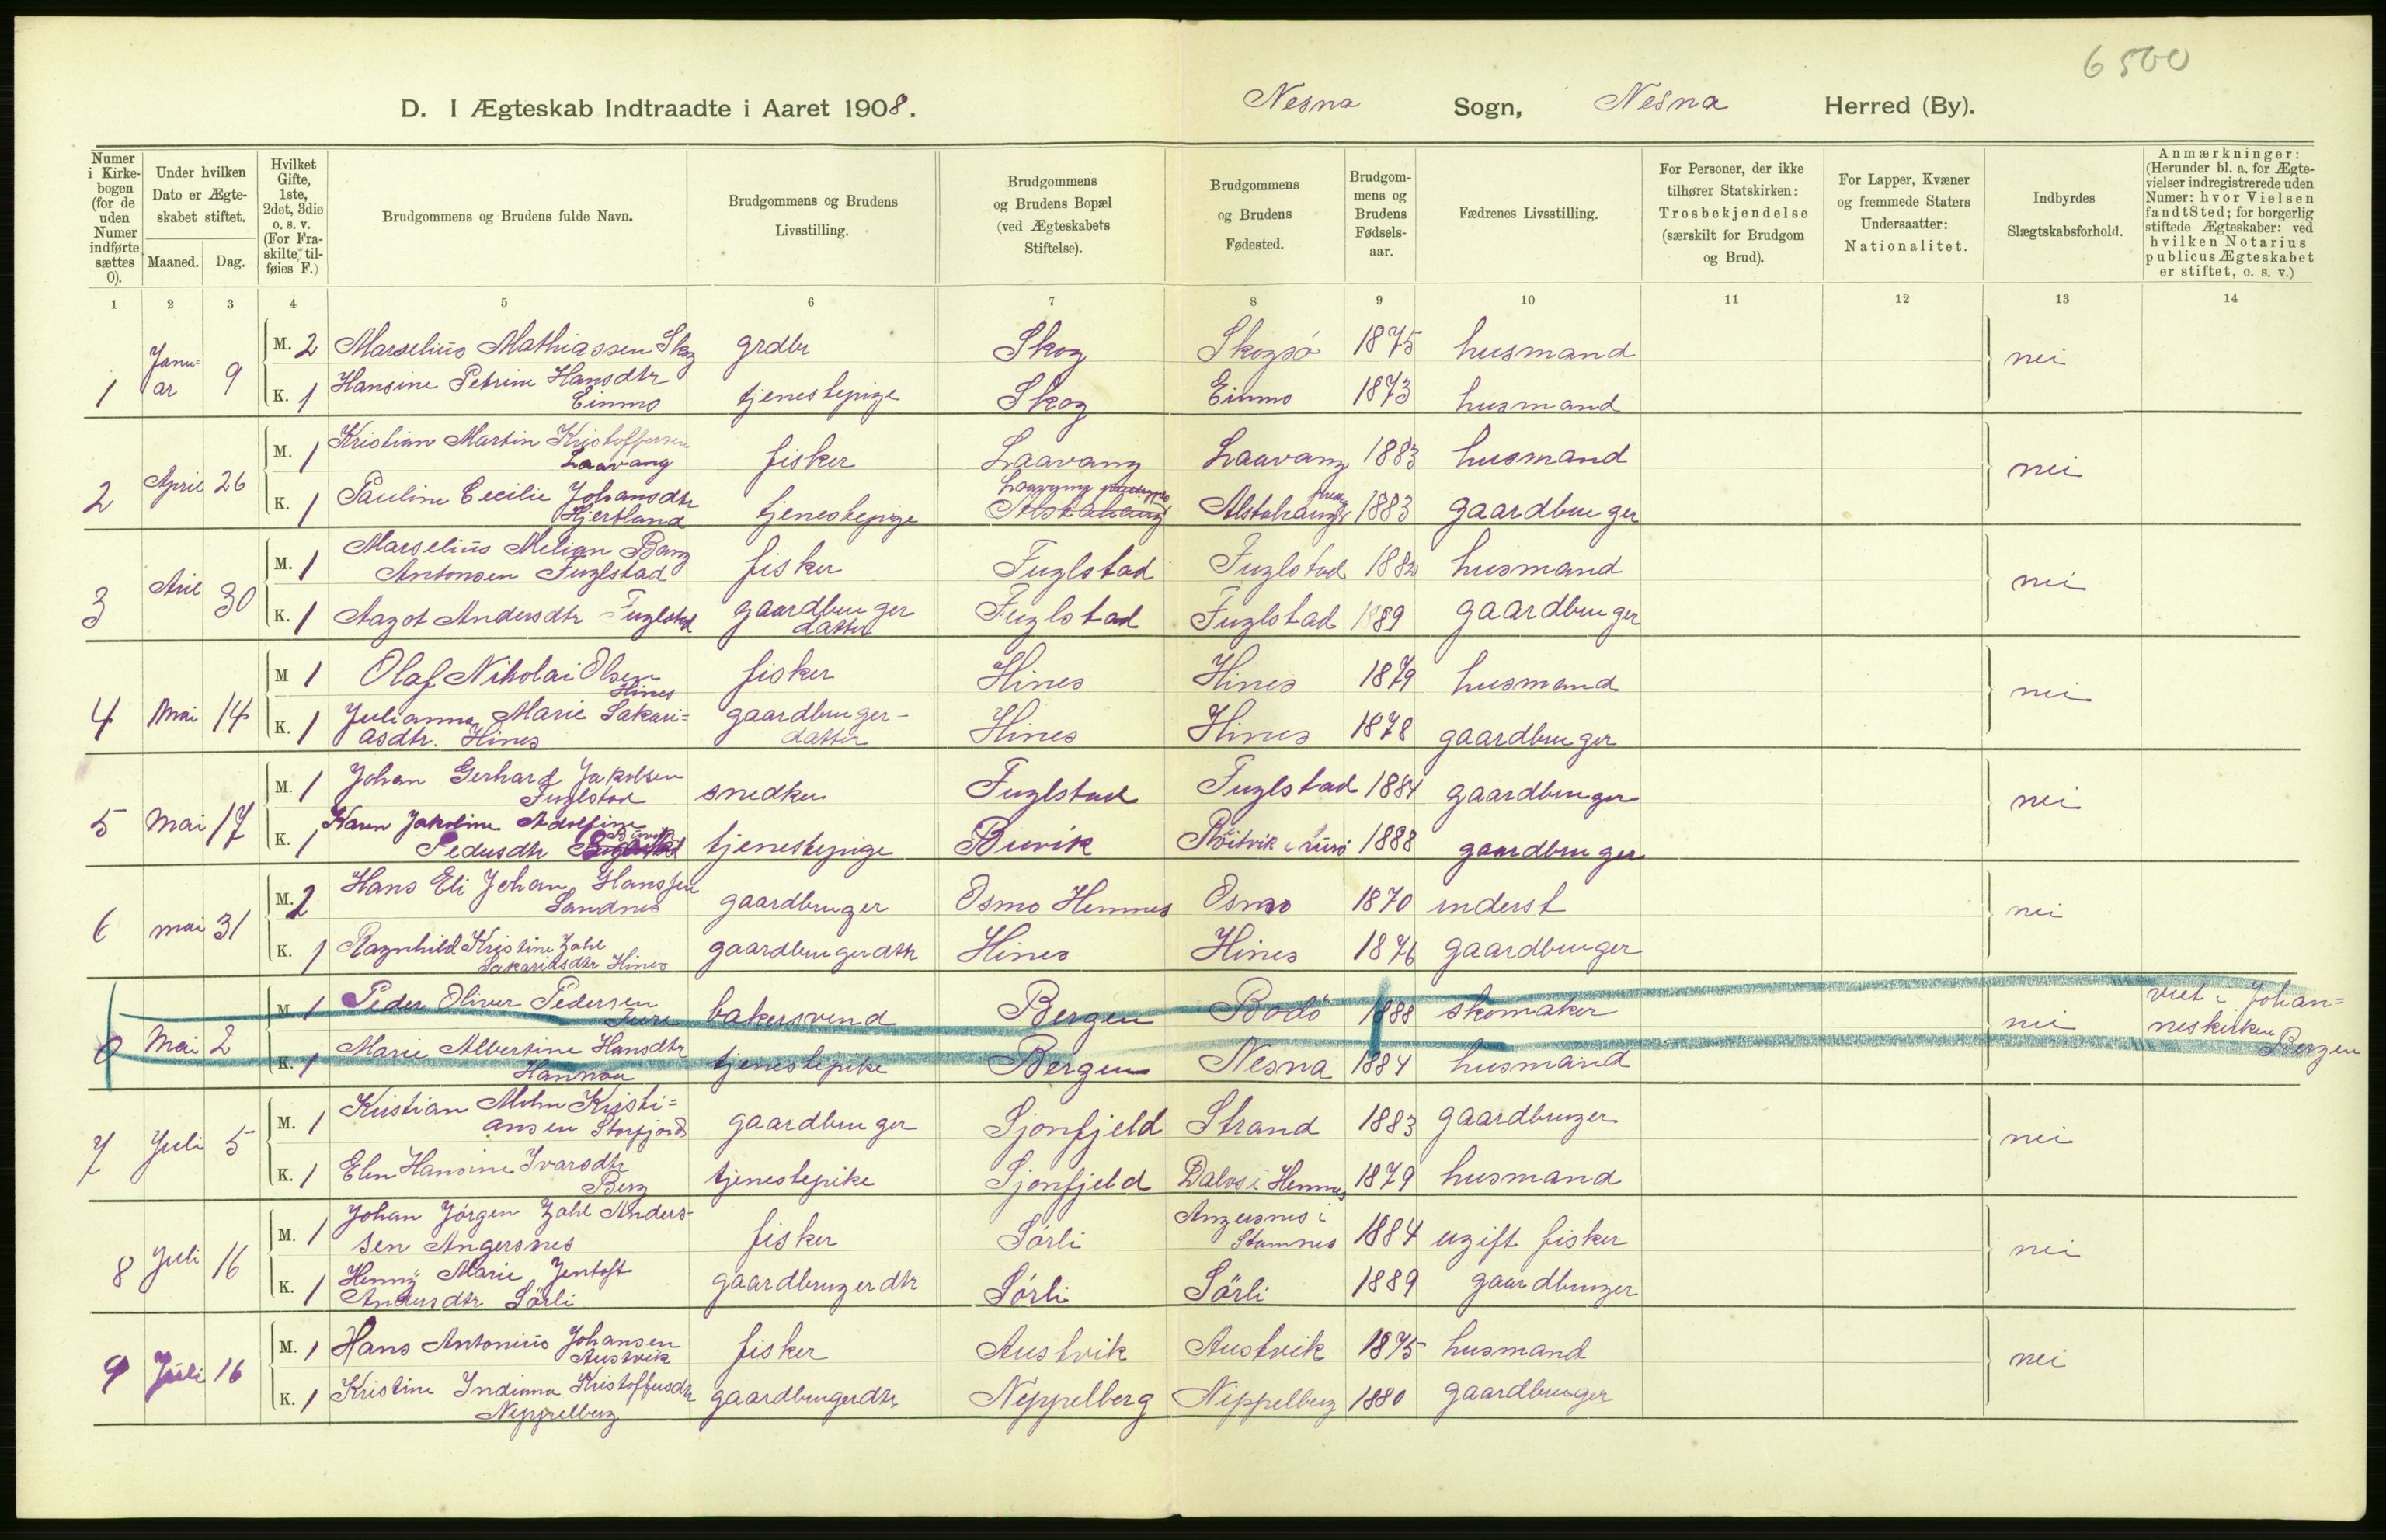 6500
D. I Ægteskab Indtraadte i Aaret 1908. Nesna Sogn, Nesna Herred (By).
Numer i Kirkebogen (for de uden Numer indførte sættes 0).
Under hvilken Dato er Ægteskabet stiftet.
Maaned. Dag.
Hvilket Gifte, 1ste, 2det, 3die o. s. v. (For Fraskilte tilføies F.)
Brudgommens og Brudens fulde Navn.
Brudgommens og Brudens Livsstilling.
Brudgommens og Brudens Bopæl (ved Ægteskabets Stiftelse).
Brudgommens og Brudens Fødested.
Brudgommens og Brudens Fødselsaar.
Fædrenes Livsstilling.
For Personer, der ikke tilhører Statskirken: Trosbekjendelse (særskilt for Brudgom og Brud).
For Lapper, Kvæner og fremmede Staters Undersaatter: Nationalitet.
Indbyrdes Slægtskabsforhold.
Anmærkninger: (Herunder bl. a. for Ægtevielser indregistrerede uden Numer: hvor Vielsen fandt Sted; for borgerlig stiftede Ægteskaber: ved hvilken Notarius publicus Ægteskabet er stiftet, o. s. v.)
1 2 3 4 5 6 7 8 9 10 11 12 13 14
1 Januar 9 M. 2 Marselius Mathiassen Skog grdbr Skog Skogsö 1875 husmand nei
K. 1 Hansine Petrine Hansdtr Einmo tjenestepige Skog Einmo 1873 husmand
2 April 26 M. 1 Kristian Martin Kristoffersen Laavang fisker Laavang Laavang 1883 husmand nei
K. 1 Pauline Cecilie Johansdtr Hjertland tjenestepige Laavang Alstahaug Alstahaug 1883 gaardbruger
3 Aril 30 M. 1 Marselius Melian Bang Antonsen Fuglstad fisker Fuglstad Fuglstad 1882 husmand nei
K. 1 Aagot Andersdtr Fuglstad gaardbruger datter Fuglstad Fuglstad 1889 gaardbruger
4 Mai 14 M 1 Olaf Nikolai Olsen Hines fisker Hines Hines 1879 husmand nei
K. 1 Julianna Marie Sakari=asdtr. Hines gaardbruger-datter Hines Hines 1878 gaardbruger
5 Mai 17 M. 1 Johan Gerhard Jakobsen Fuglstad snedker Fuglstad Fuglstad 1884 gaardbruger nei
K. 1 Karen Jakoline Adolfine Pedersdtr Buvik tjenestepige Buvik Röitvik i Lurö 1888 gaardbruger
6 mai 31 M. 2 Hans Eli Johan Hanssen Sandnes gaardbruger Osmo Hemnes Osmo 1870 inderst nei
K. 1 Ragnhild Kristine Zahl Sakariasdtr Hines gaardbrugerdtr Hines Hines 1876 gaardbruger
0 Mai 2 M 1 Peder Oliver Pedersen Fure bakersvend Bergen Bodö 1888 skomaker nei viet i Johan=neskirken Bergen
K. 1 Marie Albertine Hansdtr Hannaa tjenestepike Bergen Nesna 1884 husmand
7 Juli 5 M. 1 Kristian Mohn Kristi=ansen Storfjord gaardbruger Sjonfjeld Strand 1883 gaardbruger nei
K. 1 Elen Hansine Ivarsdtr Berg tjenestepike Sjonfjeld Dalos i Hemnes 1879 husmand
8 Juli 16 M. 1 Johan Jörgen Zahl Anders-sen Angersnes fisker Sörli Angersnes i Stamnes 1884 ugift fisker nei
K. 1 Henny Marie Jentoft Andersdtr Sörli gaardbrugerdtr Sörli Sörli 1889 gaardbruger
9 Juli 16 M. 1 Hans Antonius Johansen Austvik fisker Austvik Austvik 1875 husmand nei
K. 1 Kristine Indianna Kristoffersdtr Neppelberg gaardbrugerdtr Neppelberg Nippelberg 1880 gaardbruger